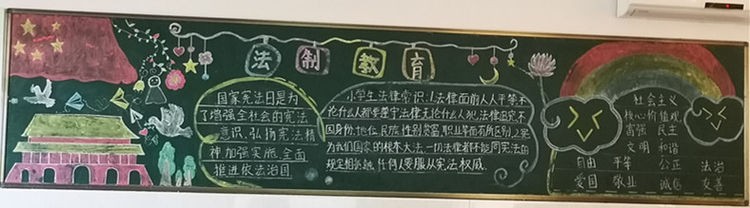 法制教育
国家宪法日是为
了增强全社会的宪法
意识、弘扬宪法精
神加强实施、全面
推进依法治国
小学生法律常识:1.法律面前人人平等不
论什么人都要遵守法律,无论什么人犯,法律追究不
因身份、地位、民族、性别、贫富、职业等而有所区别,2.宪
为我们国家的根本大法,一切法律都不能同宪法的
规定相抵触,任何人要服从宪法权威.
社会主义
核心价值观
富强 民主
文明 和谐
自由 平等 公正 法治
爱国 敬业 诚信 友善